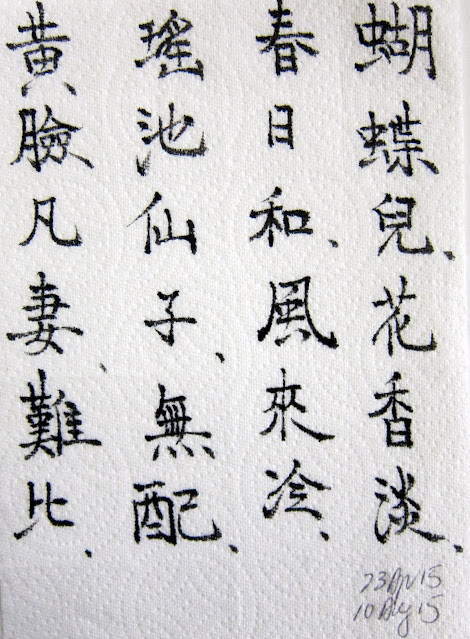 蝴蝶兒、花香淡、
春日和、風來冷、
瑤池仙子、無配、
黃臉凡妻、難比、
23 Apr 15
10 May 15